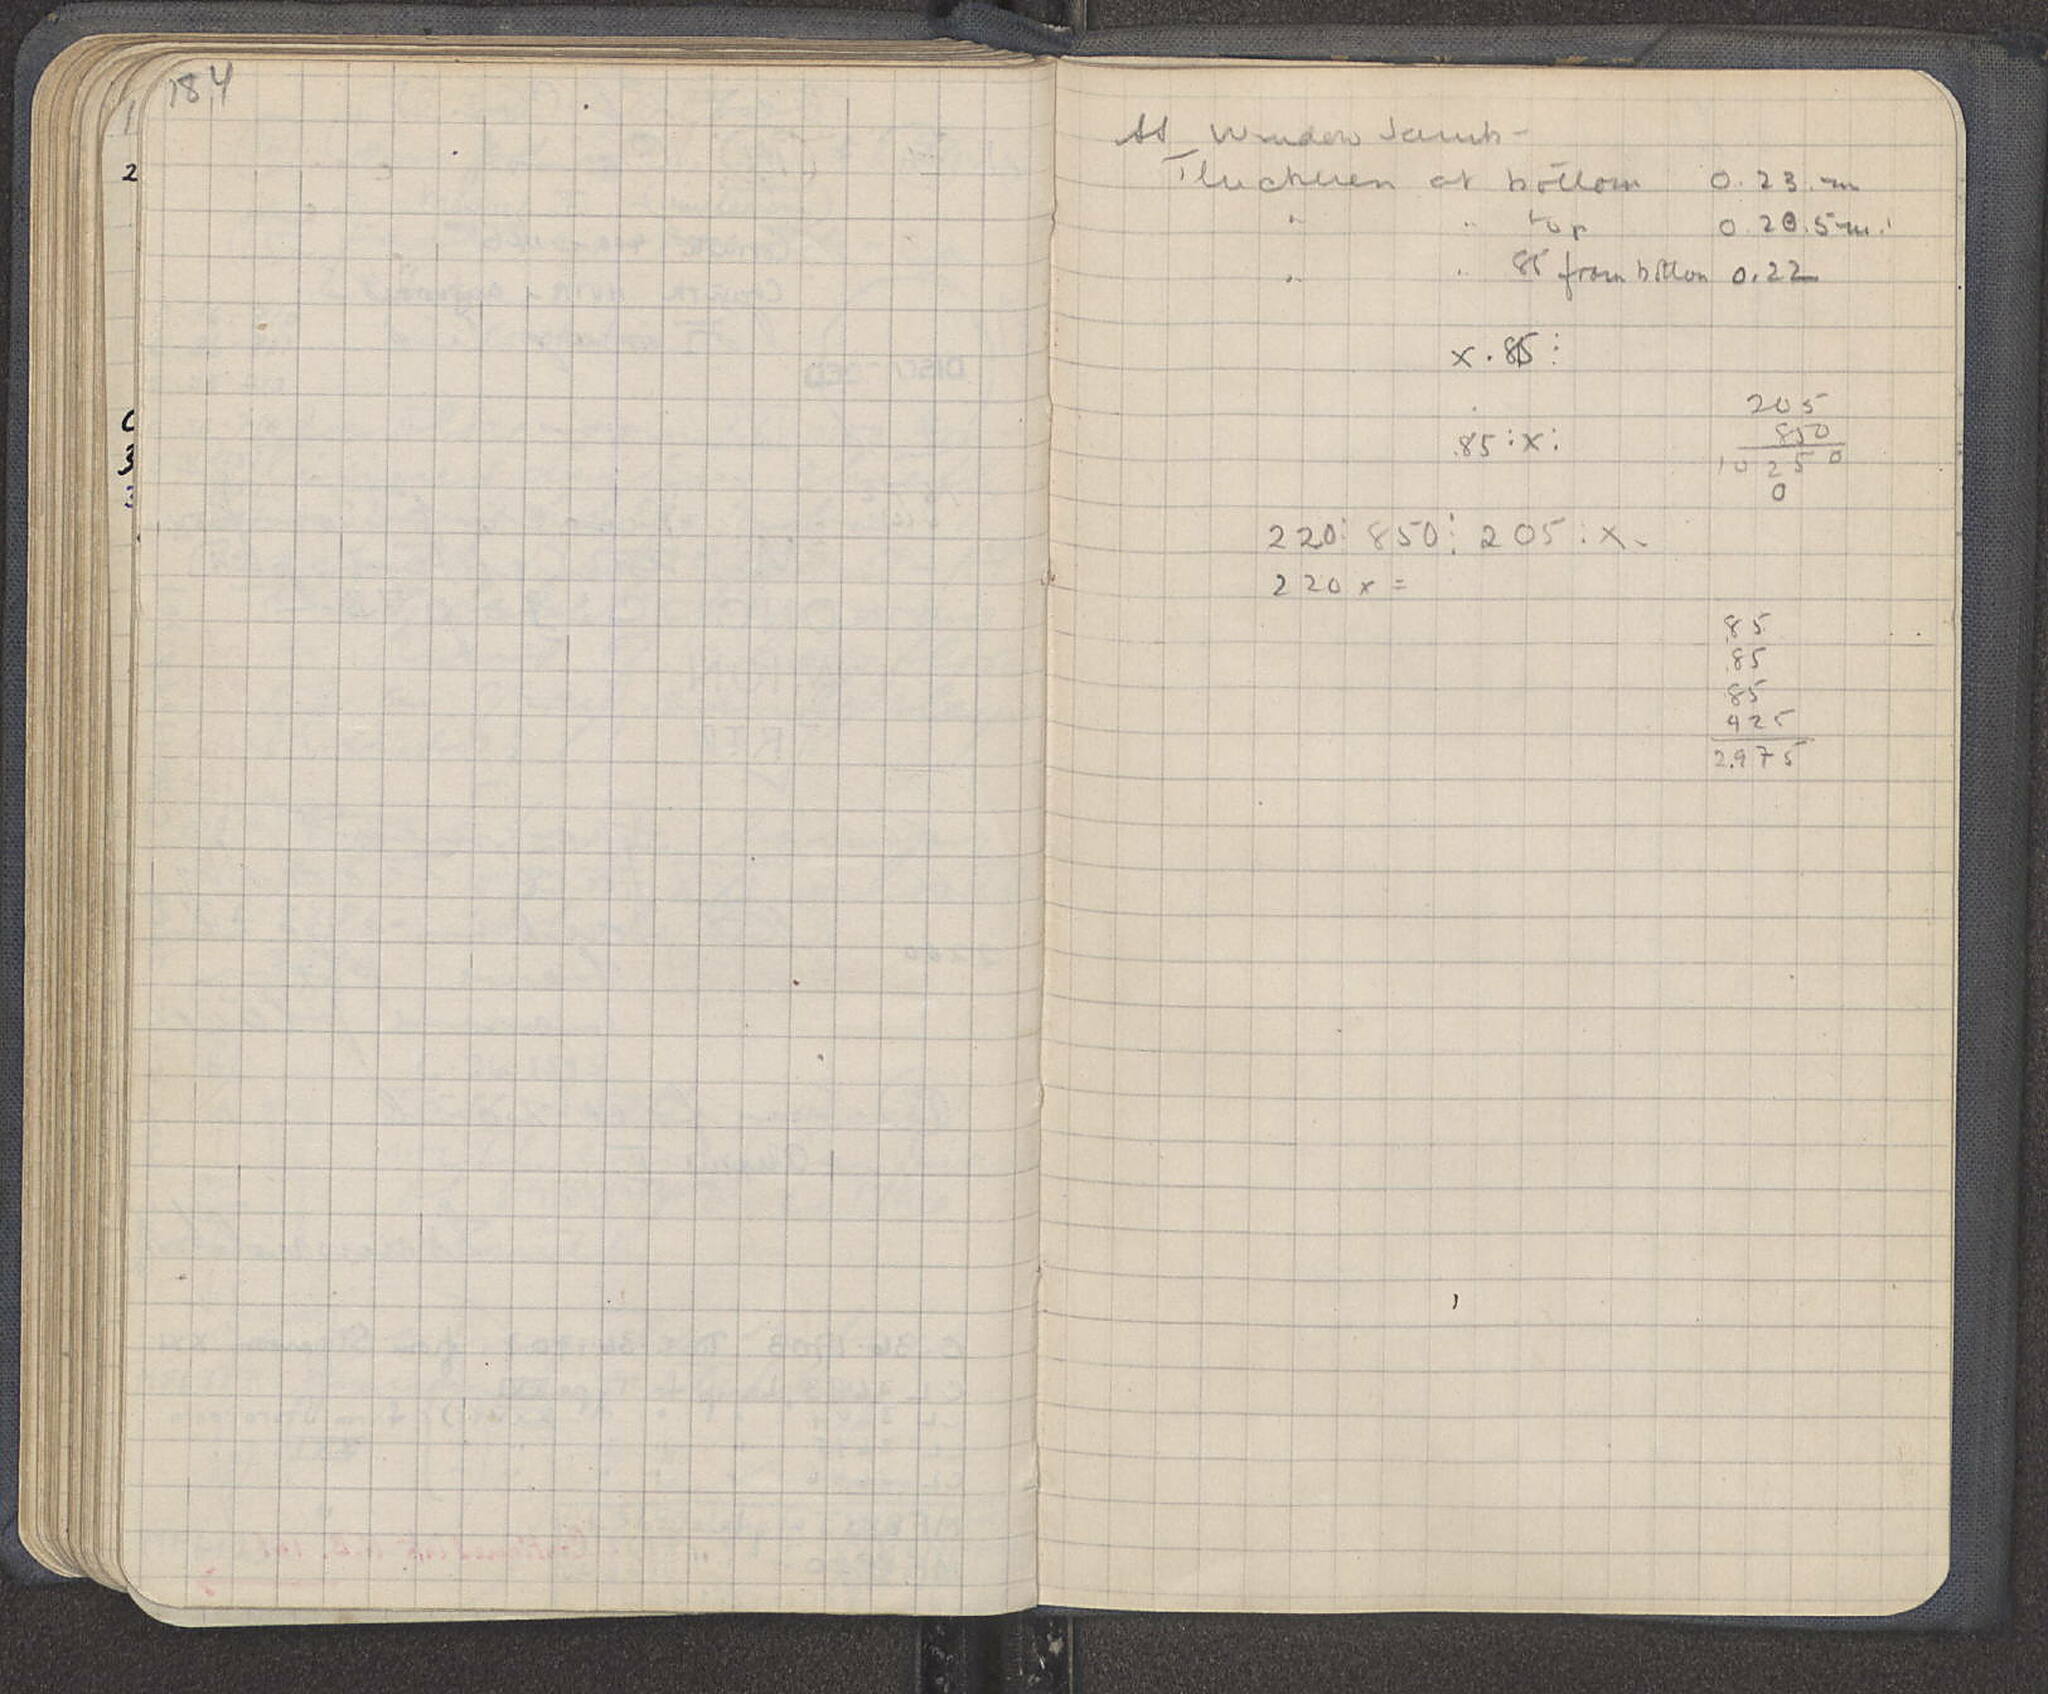 184
2
Window Jamb -
Thickness at bottom 0.23.m
" " top 0.20.5m.
" " 85 from bottom 0.22
x . 85 :
.85 : x :
205
850
10250
0
220 : 850 : 205 : x.
220 x =
85
.85
85
425
2.975